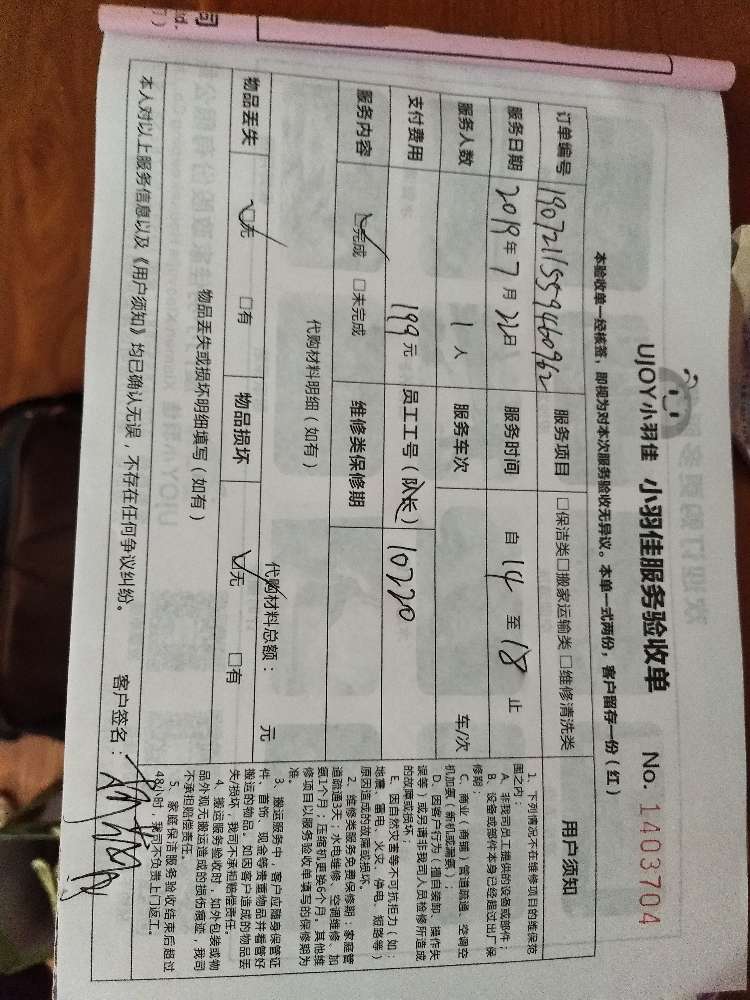 UJOY小羽佳 小羽佳服务验收单 No. 1403704
本验收单一经核签，即视为对本次服务验收无异议。本单一式两份，客户留存一份（红）
订单编号 服务项目 □保洁类□搬家运输类□维修清洗类
服务日期 2019年7月22日 服务时间 自 14 至 18 止
服务人数 1人 服务车次 车/次
支付费用 199元 员工工号（队长） 10220
服务内容 ☑完成 □未完成 维修类保修期
代购材料明细（如有）
代购材料总额： 元
物品丢失 ☑无 □有 物品损坏 ☑无 □有
物品丢失或损坏明细填写（如有）
本人对以上服务信息以及《用户须知》均已确认无误，不存在任何争议纠纷。 客户签名：
用户须知
1、下列情况不在维修项目的维保范
围之内：
A、非我司员工提供的设备或部件；
B、设备或部件本身已经超过出厂保
修期；
C、商业（商铺）管道疏通、空调空
机加氨（新机或漏氨）；
D、因客户行为（擅自装卸、操作失
误等）或另请非我司人员检修所造成
的故障或损坏；
E、因自然灾害等不可抗拒力（如：
地震、雷电、火灾、停电、短路等）
原因造成的故障或损坏。
2、维修类服务免费保修期：家庭管
道疏通3天；水电维修、空调维修、加
氨1个月，压缩机更换6个月，其他维
修项目以服务验收单填写的保修期为
准。
3、搬运服务中，客户应随身保管证
件、首饰、现金等贵重物品并看管好
搬运的物品。如因客户造成的物品丢
失/损坏，我司不承担赔偿责任。
4、搬运服务验收时，如外包装或物
品外观无搬运造成的损伤痕迹，我司
不承担赔偿责任。
5、家庭保洁服务验收结束后超过
48小时，我司不负责上门返工。